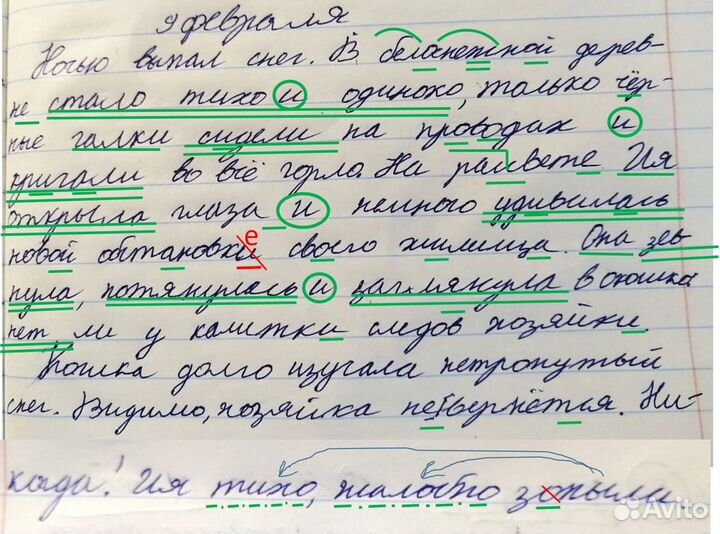 9 февраля
Ночью выпал снег. В белоснежной дерев-
не стало тихо и одиноко, только чёр-
ные галки сидели на проводах и
кричали во всё горло. На рассвете Ия
открыла глаза и немного удивилась
новой обстановки е своего жилища. Она зев-
нула, потянулась и заглянула в окошко
нет ли у калитки следов хозяйки.
Кошка долго изучала нетронутый
снег. Видимо, хозяйка не вернётся. Ни-
када! Ия тихо, жалобно
Avito